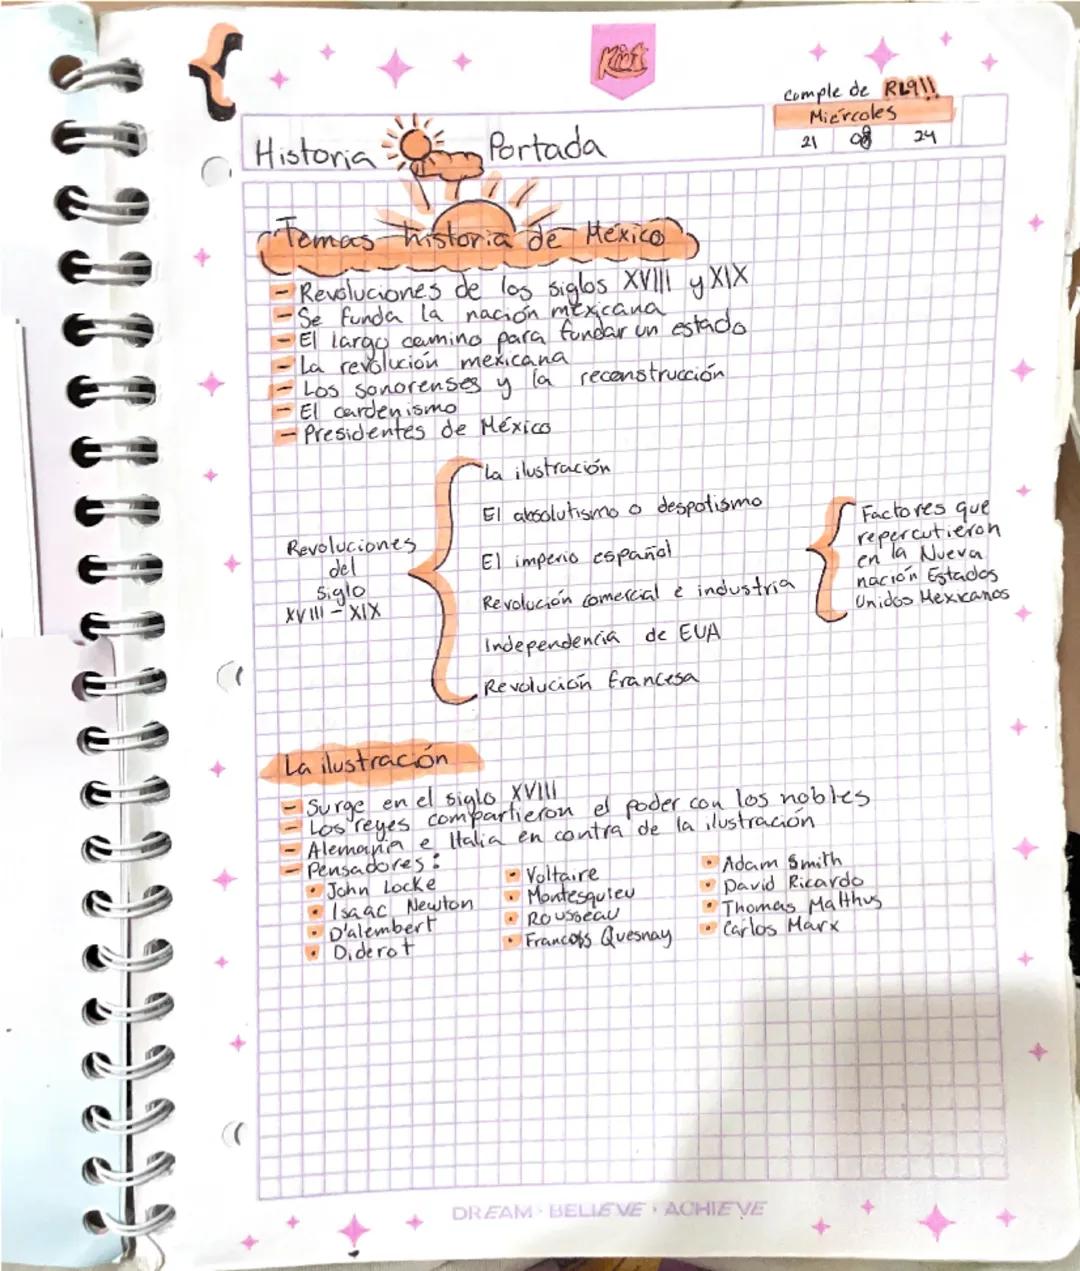 cumple de RL9!!
Miércoles
21 08 24
Historia Portada
Temas historia de México
- Revoluciones de los siglos XVIII y XIX
- Se funda la nación mexicana
- El largo camino para fundar un estado
- La revolución mexicana
- Los sonorenses y la reconstrucción
- El cardenismo
- Presidentes de México
Revoluciones
del
siglo
XVIII - XIX
La ilustración
El absolutismo o despotismo
El imperio español
Revolución comercial e industria
Independencia de EUA
Revolución francesa
Factores que
repercutieron
en la Nueva
nación Estados
Unidos Mexicanos
La ilustración
- Surge en el siglo XVIII
- Los reyes compartieron el poder con los nobles
- Alemania e Italia en contra de la ilustración
- Pensadores:
• John Locke
• Isaac Newton
• D'alembert
• Diderot
• Voltaire
• Montesquieu
• Rousseau
• Francois Quesnay
• Adam Smith
• David Ricardo
• Thomas Malthus
• Carlos Marx
DREAM · BELIEVE · ACHIEVE